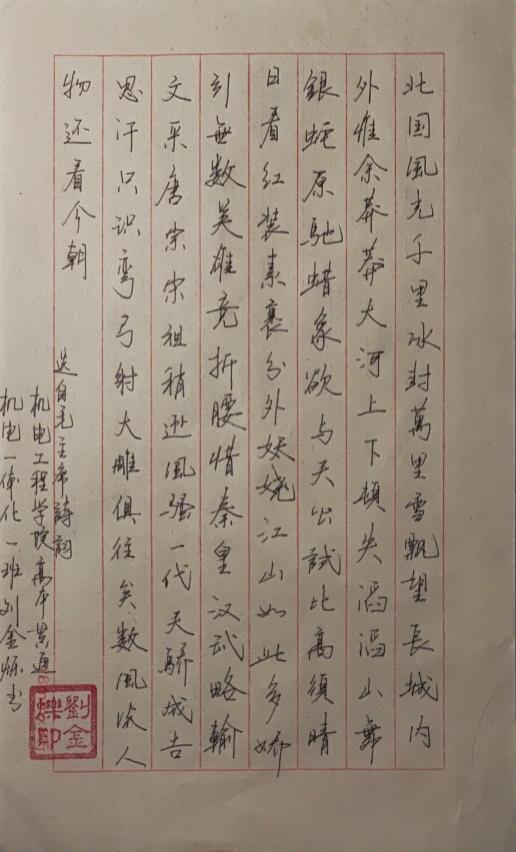 北国風光千里冰封萬里雪飄望長城内
外惟余莽莽大河上下頓失滔滔山舞
銀蛇原馳蜡象欲与天公試比高須晴
日看红装素裹分外妖娆江山如此多娇
引無数英雄竞折腰惜秦皇汉武略輸
文采唐宗宋祖稍逊風骚一代天驕成吉
思汗只识弯弓射大雕俱往矣数風流人
物还看今朝
选自毛主席詩詞
机电工程学院高本贯通
机电一体化一班刘金烁书
劉金
爍印